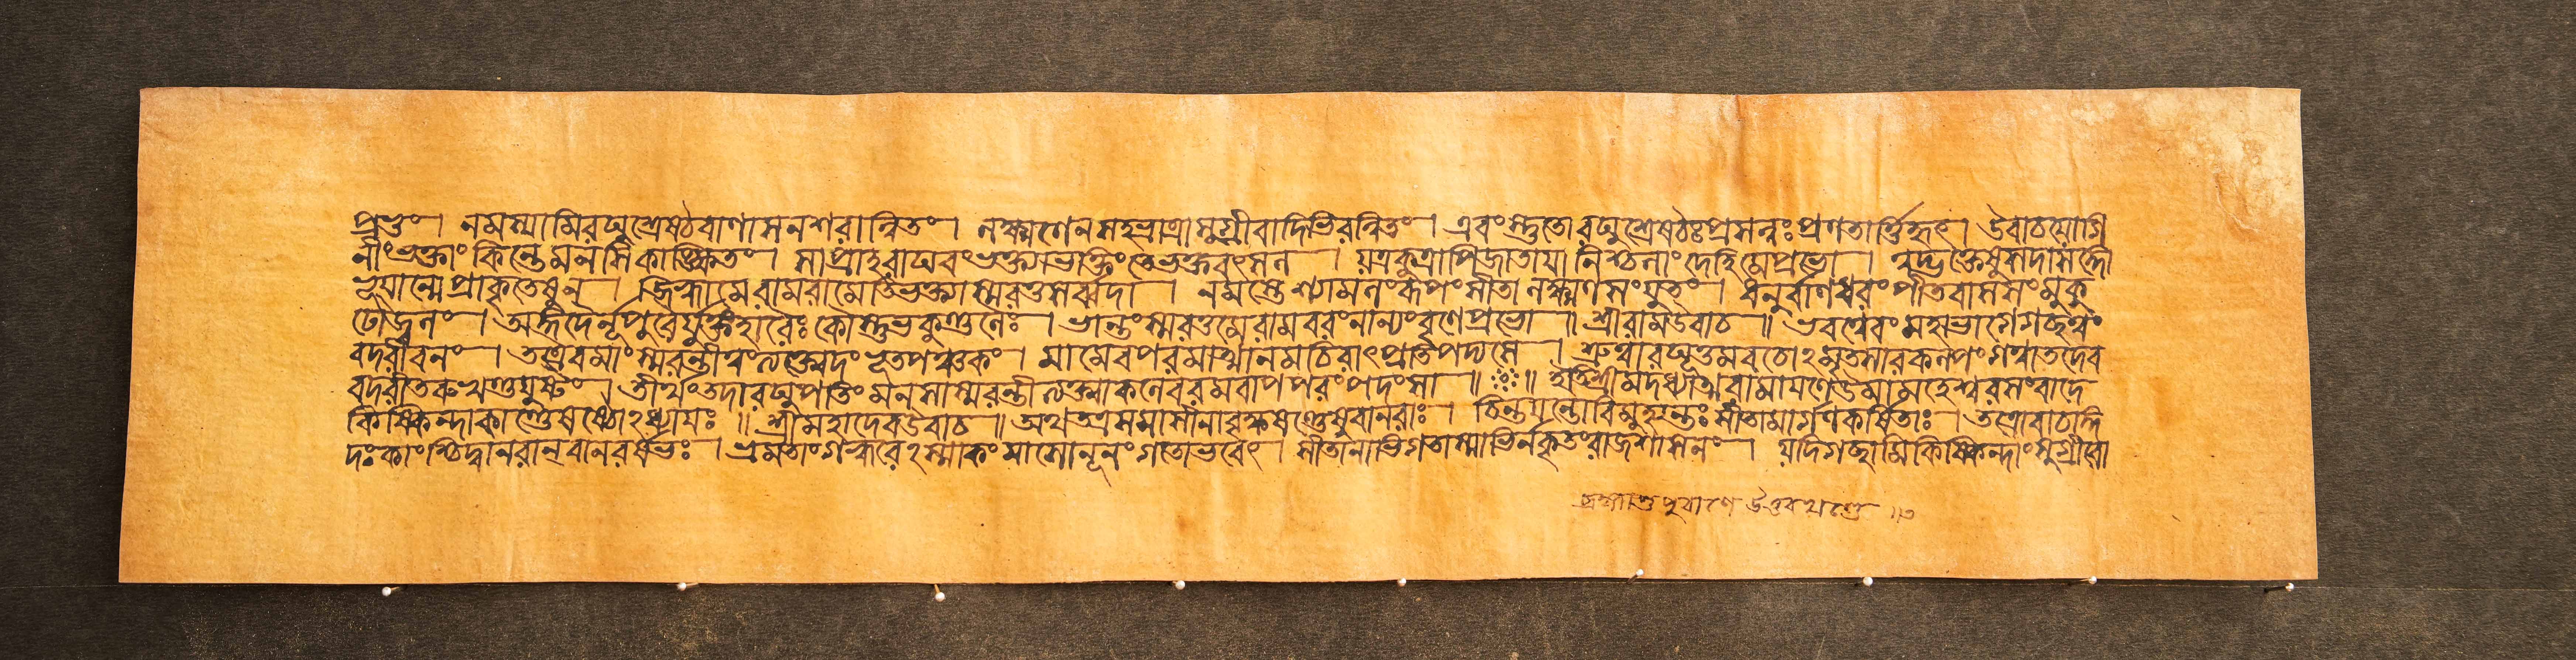 প্রভুং। নমস্যামিরঘুশ্রেষ্ঠংবাণাসনশরান্বিতং। লক্ষ্মণেনসহভ্রাত্রাসুগ্রীবাদিভিরন্বিতং। এবংস্তুতোরঘুশ্রেষ্ঠঃপ্রসন্নঃপ্রণতার্ত্তিহৃৎ। উবাচযোগি
নীংভক্তাং কিন্তেমনসিকাঙ্ক্ষিতং। সাপ্রাহরাঘবংভক্ত্যাভক্তিংতেভক্তবৎসল। যত্রকুত্রাপিজাতায়ানিশ্চলাংদেহিমেপ্রভো। ত্বদ্ভক্তেষুসদাসঙ্গো
ভূয়ান্মেপ্রাকৃতেষুন। জিহ্বামেরামরামেতিভক্ত্যাস্মরতুসর্ব্বদা। নমস্তে শ্যামলংরূপংসীতালক্ষ্মণসংযুতং। ধনুর্বাণধরংপীতবাসসংমুকু
টোজ্জ্বলং। অঙ্গদৈর্নূপুরৈর্যুক্তংহারৈঃ কৌস্তুভকুণ্ডলৈঃ। ভান্তংস্মরতুমেরামবরংনান্যংবৃণেপ্রভো॥ শ্রীরামউবাচ॥ ভবত্বেবংমহাভাগেগচ্ছত্বং
বদরীবনং। তত্রৈবমাংস্মরন্তীত্বংত্যক্ত্বেদংভূতপঞ্চকং। মামেবপরমাত্মানমচিরাৎপ্রতিপদ্যসে। শ্রুত্বারঘূত্তমবচোঽমৃতসারকল্পংগত্বাতদৈব
বদরীতরুখণ্ডযুষ্টং। তীর্থংতদারঘুপতিংমনসাস্মরন্তীত্যক্ত্বাকলেবরমবাপপরংপদংসা॥ ॥ ইতিশ্রীমদধ্যাত্মরামায়ণেউমামহেশ্বরসংবাদে
কিষ্কিন্ধাকাণ্ডেষষ্ঠোঽধ্যায়ঃ॥ শ্রীমহাদেবউবাচ॥ অথতত্রসমাসীনাবৃক্ষষণ্ডেষুবানরাঃ। চিন্তয়ন্তোবিমুহ্যন্তঃসীতামার্গণকর্ষিতাঃ। তত্রোবাচাঙ্গ
দঃকাংশ্চিদ্বানরান্ বানরর্ষভঃ। ভ্রমতাংগহ্বরেঽস্মাকংমাসোনূনংগতোভবেৎ। সীতানাধিগতাস্মাভির্নকৃতংরাজশাসনং। যদিগচ্ছামিকিষ্কিন্ধাংসুগ্রীবো
ব্রহ্মাণ্ডপুরাণে উত্তরখণ্ডে